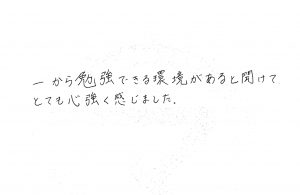 一から勉強できる環境があると聞けて
とても心強く感じました.